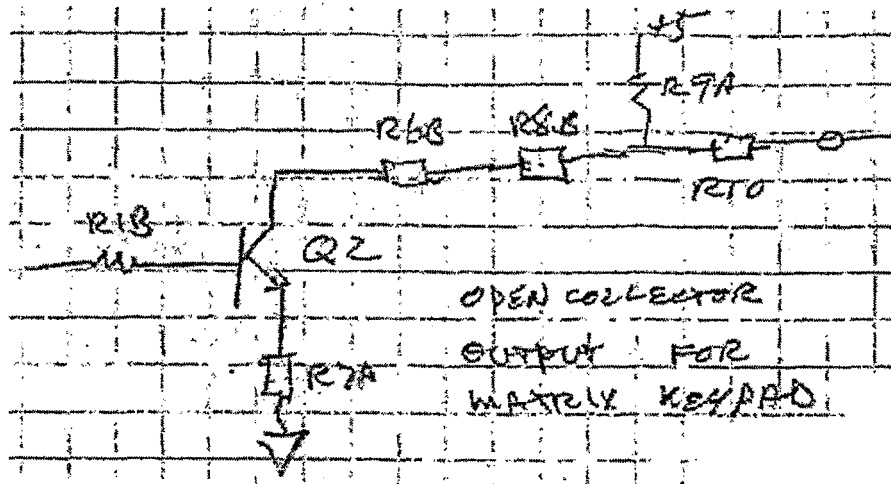 +5
R9A
R6B
R8B
R10
R1B
Q2
R7A
OPEN COLLECTOR
OUTPUT FOR
MATRIX KEYPAD